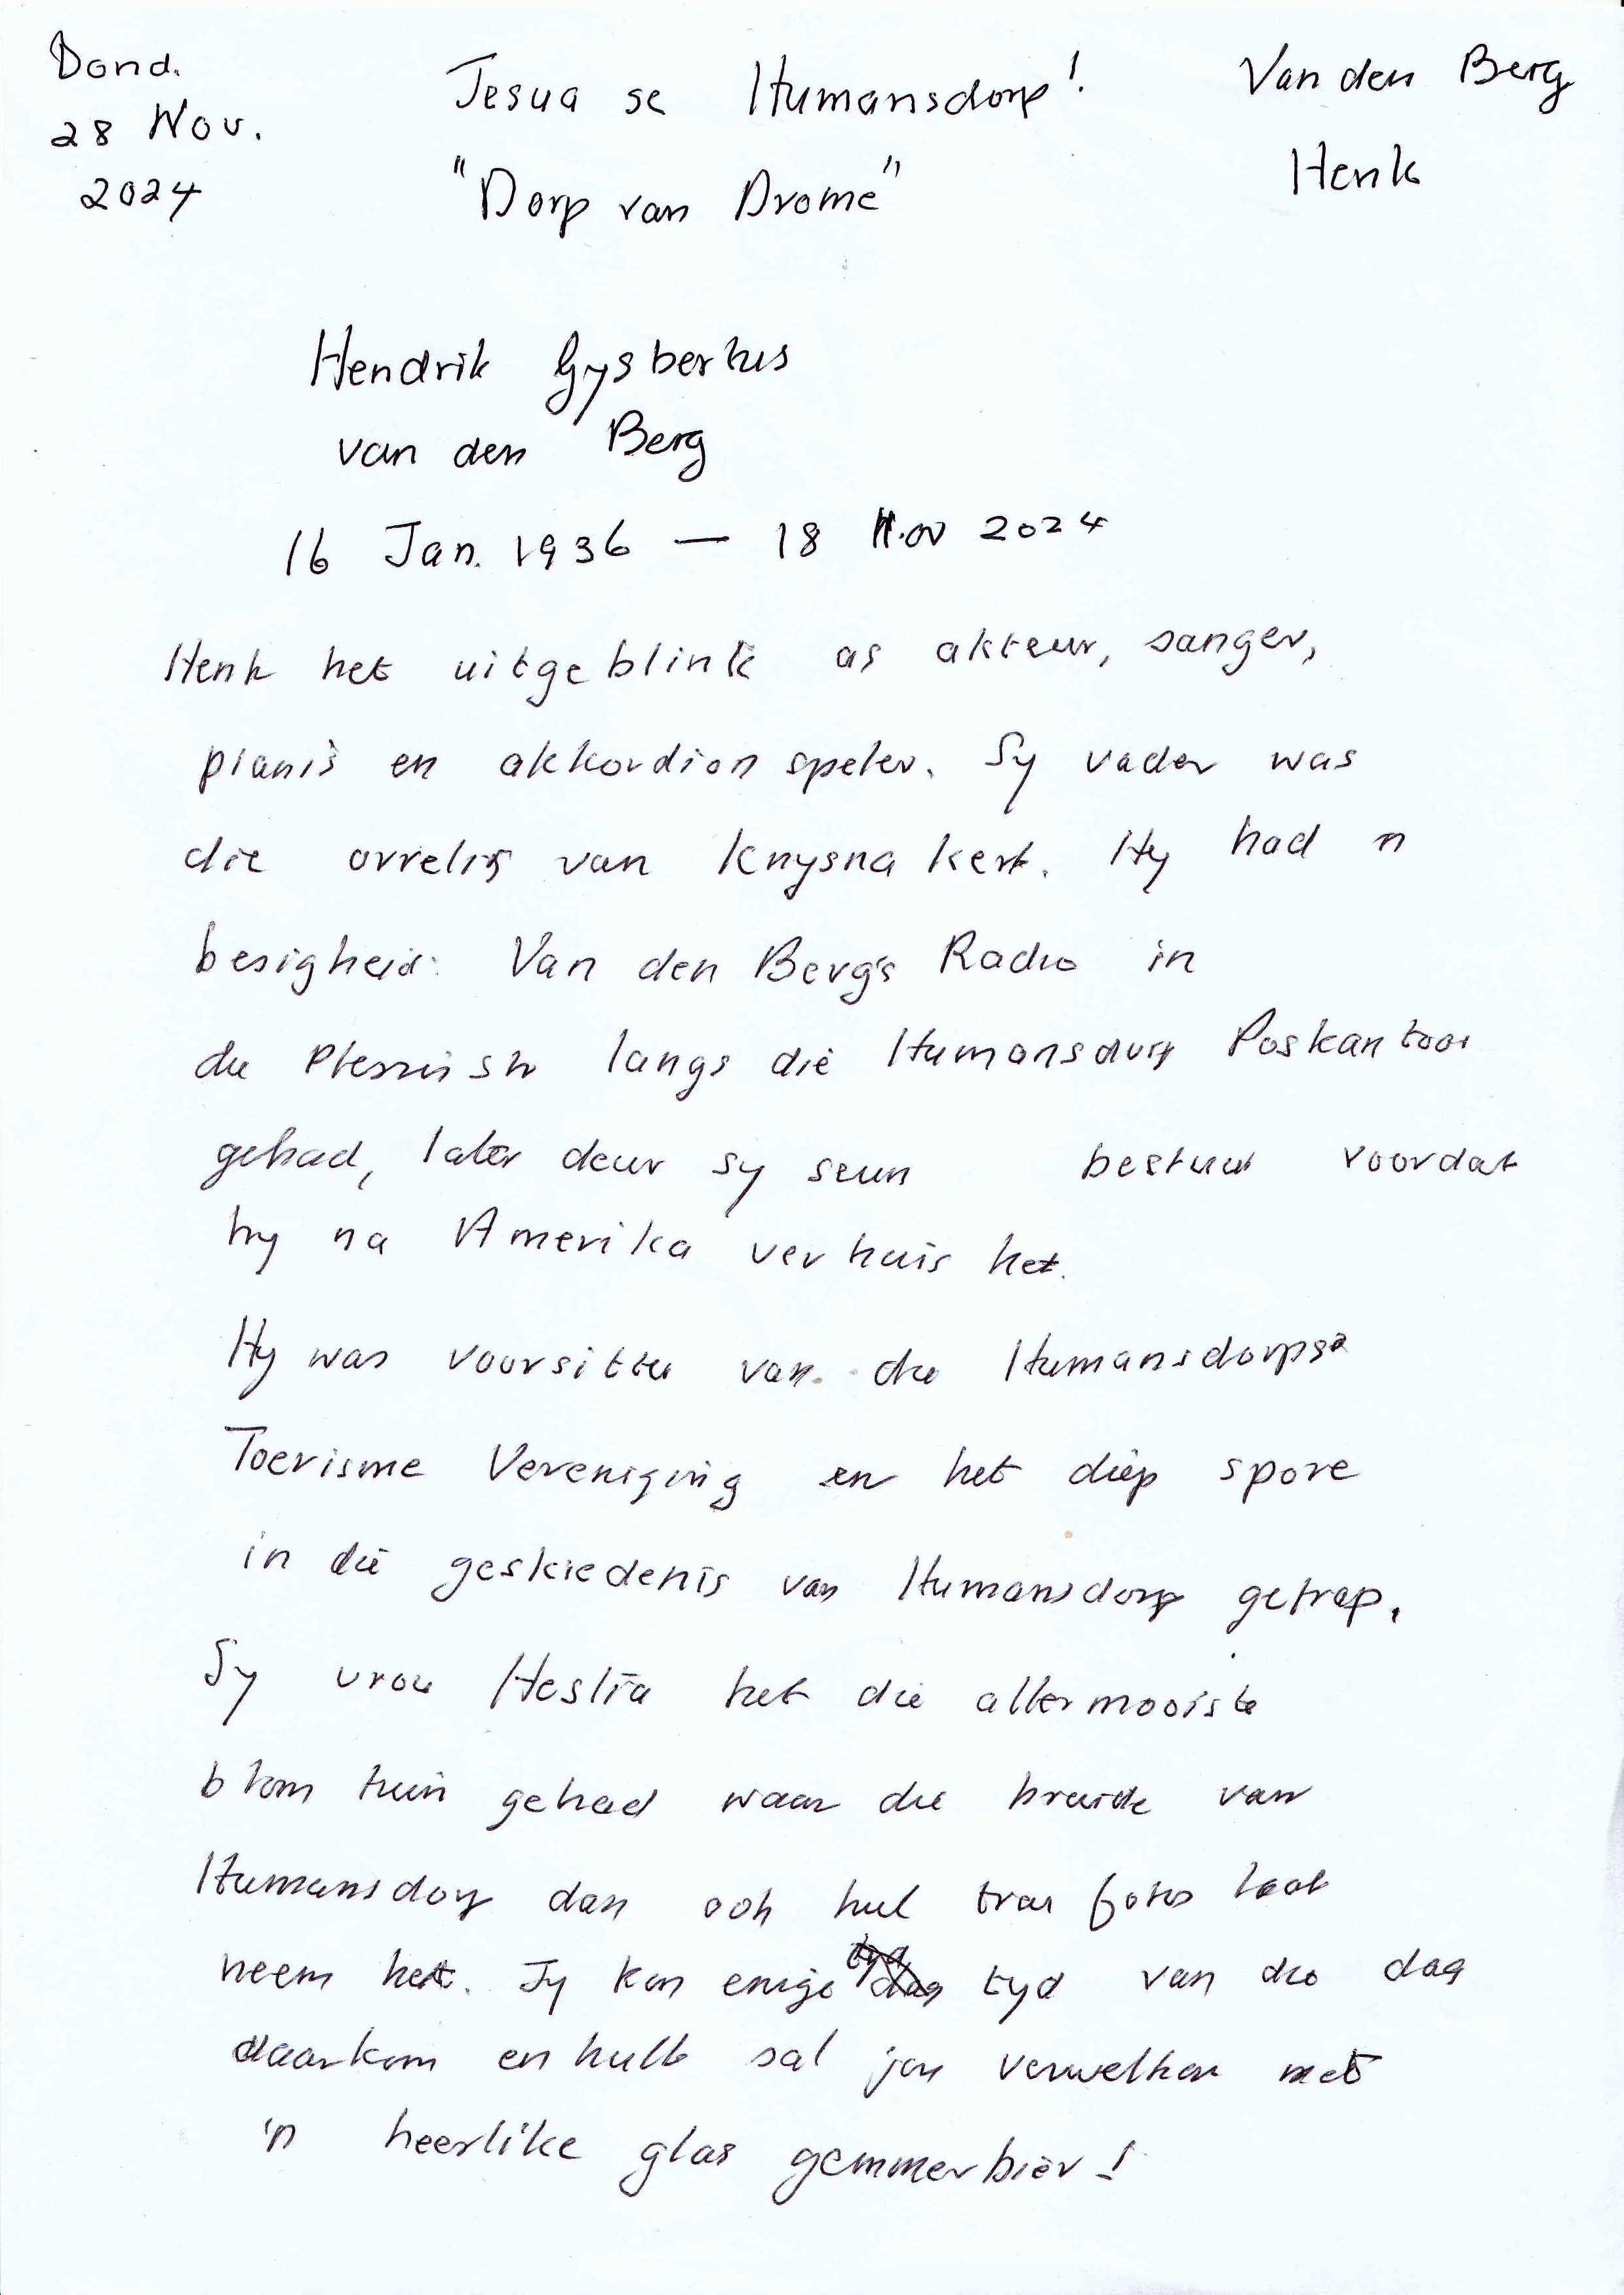 Dond.
28 Nov.
2024
Jesua se Humansdorp!
"Dorp van Drome"
Van den Berg
Henk
Hendrik Gysbertus
van den Berg
16 Jan. 1936 — 18 Nov 2024
Henk het uitgeblink as akteur, sanger,
pianis en akkordion speler. Sy vader was
die orrelis van Knysna kerk. Hy had 'n
besigheid: Van den Berg's Radio in
du Plessis str langs die Humansdorp Poskantoor
gehad, later deur sy seun bestuur voordat
hy na Amerika verhuis het.
Hy was voorsitter van die Humansdorpse
Toerisme Vereniging en het diep spore
in die geskiedenis van Humansdorp getrap.
Sy vrou Hestia het die allermooiste
blom tuin gehad waar die bruide van
Humansdorp dan ook hul trou fotos laat
neem het. Jy kon enige tyd van die dag
daarkom en hulle sal jou verwelkom met
'n heerlike glas gemmerbier!